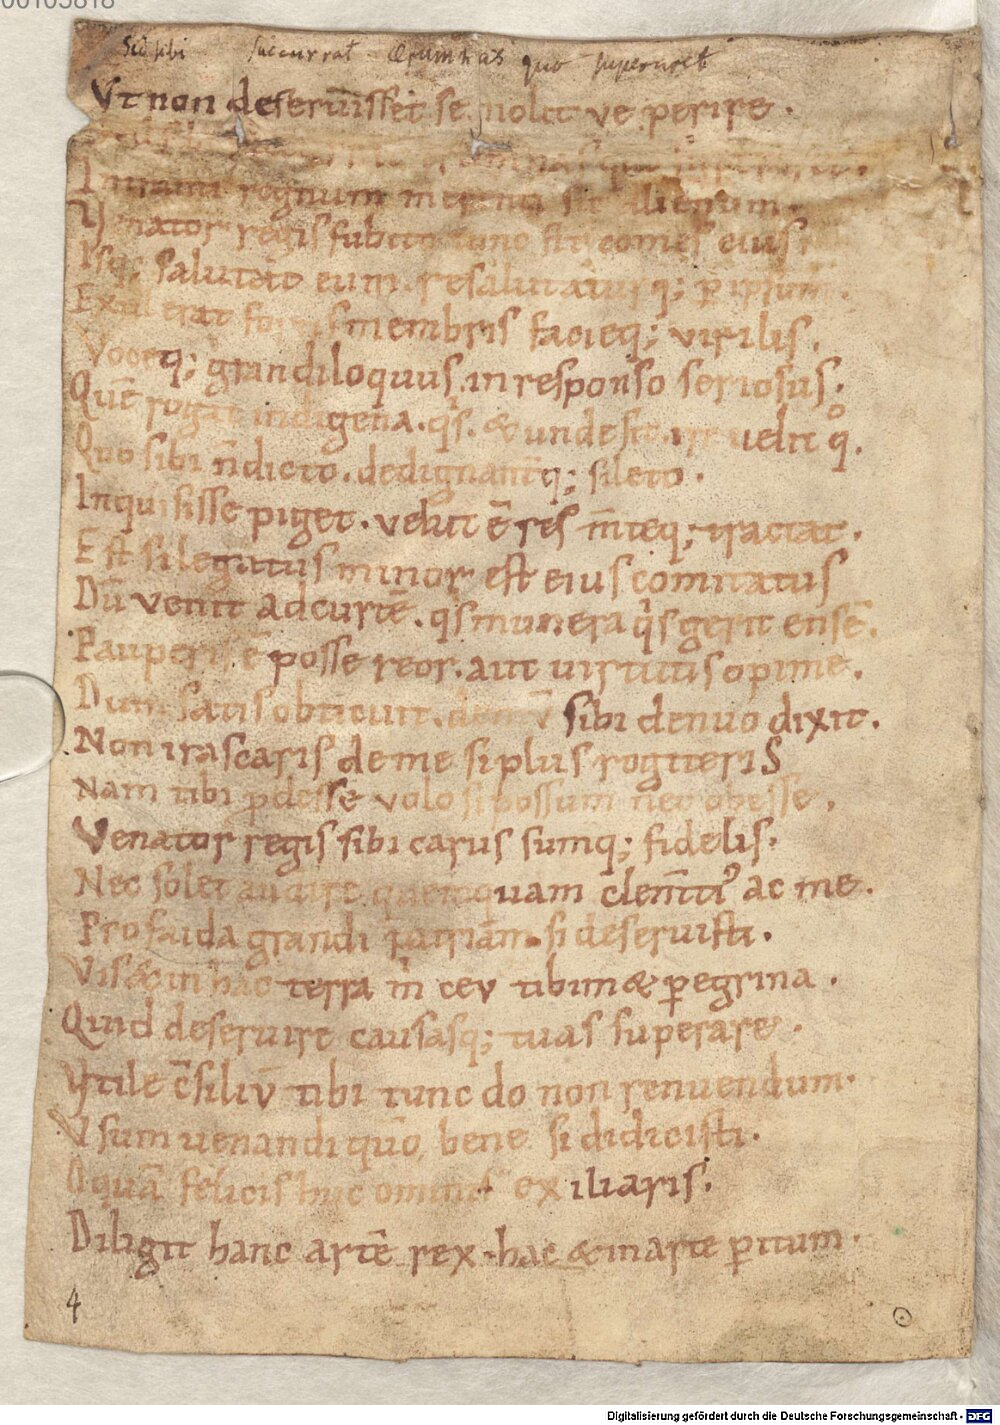 00103818
Sic sibi succurrat ærumnas quo superaret
Vt non deseruisset se nolit ve perire.
regnum
Venator regis subito tunc fit comes eius
Isq; salutat eum. resalutaturq; p ipsum.
Exsuperat fortis membris facieq; virilis.
Voceq; grandiloquus. in responso seriosus.
Quē rogat indigena. qs. & unde sit. uelit qͦ.
Quo sibi n̄ dicto. dedignantq; sileto.
Inquisisse piget. velut ē res m̄teq; tractat.
Est si legatus minor est eius comitatus
Dū venit ad curtē. qs munera qs gerit ensē.
Pauperis ē posse reor. aut uirtutis opime.
Dum satis obticuit. demū sibi denuo dixit.
Non irascaris de me si plus rogiteris
Nam tibi pdesse volo si possum nec obesse.
Venator regis sibi carus sumq; fidelis.
Nec solet audire quemquam clem̄ti᾽ ac me.
Pro faida grandi patriam si deseruisti.
Vis & in hac terra m̄ ceu tibimet pegrina.
Quid deseruire causasq; tuas superare.
Vtile c̄siliū tibi tunc do non renuendum.
Vsum uenandi quo bene si didicisti.
O quā felicis huc ominis exiliaris.
Diligit hanc artē rex. hac & in arte pitum.
4
Digitalisierung gefördert durch die Deutsche Forschungsgemeinschaft - DFG